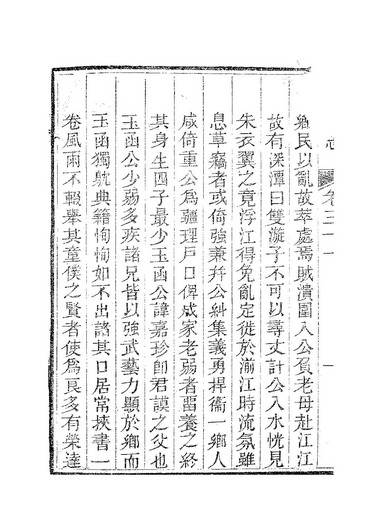 志
卷三十一
鄉民以亂故萃處焉賊潰圍入公負老母赴江江
故有深潭曰雙漩子不可以尋丈計公入水恍見
朱衣翼之竟浮江得免亂定徙於湔江時流氛雖
息草竊者或倚強兼并公糾集義勇捍衞一鄉人
咸倚重公爲疆理戸口俾成家老弱者畱養之終
其身生四子最少玉函公諱嘉珍卽君謨之父也
玉函公少弱多疾諸兄皆以強武藝力顯於鄉而
玉函獨躭典籍恂恂如不出諸其口居常挾書一
卷風雨不輟舉其童僕之賢者使爲良多有榮達